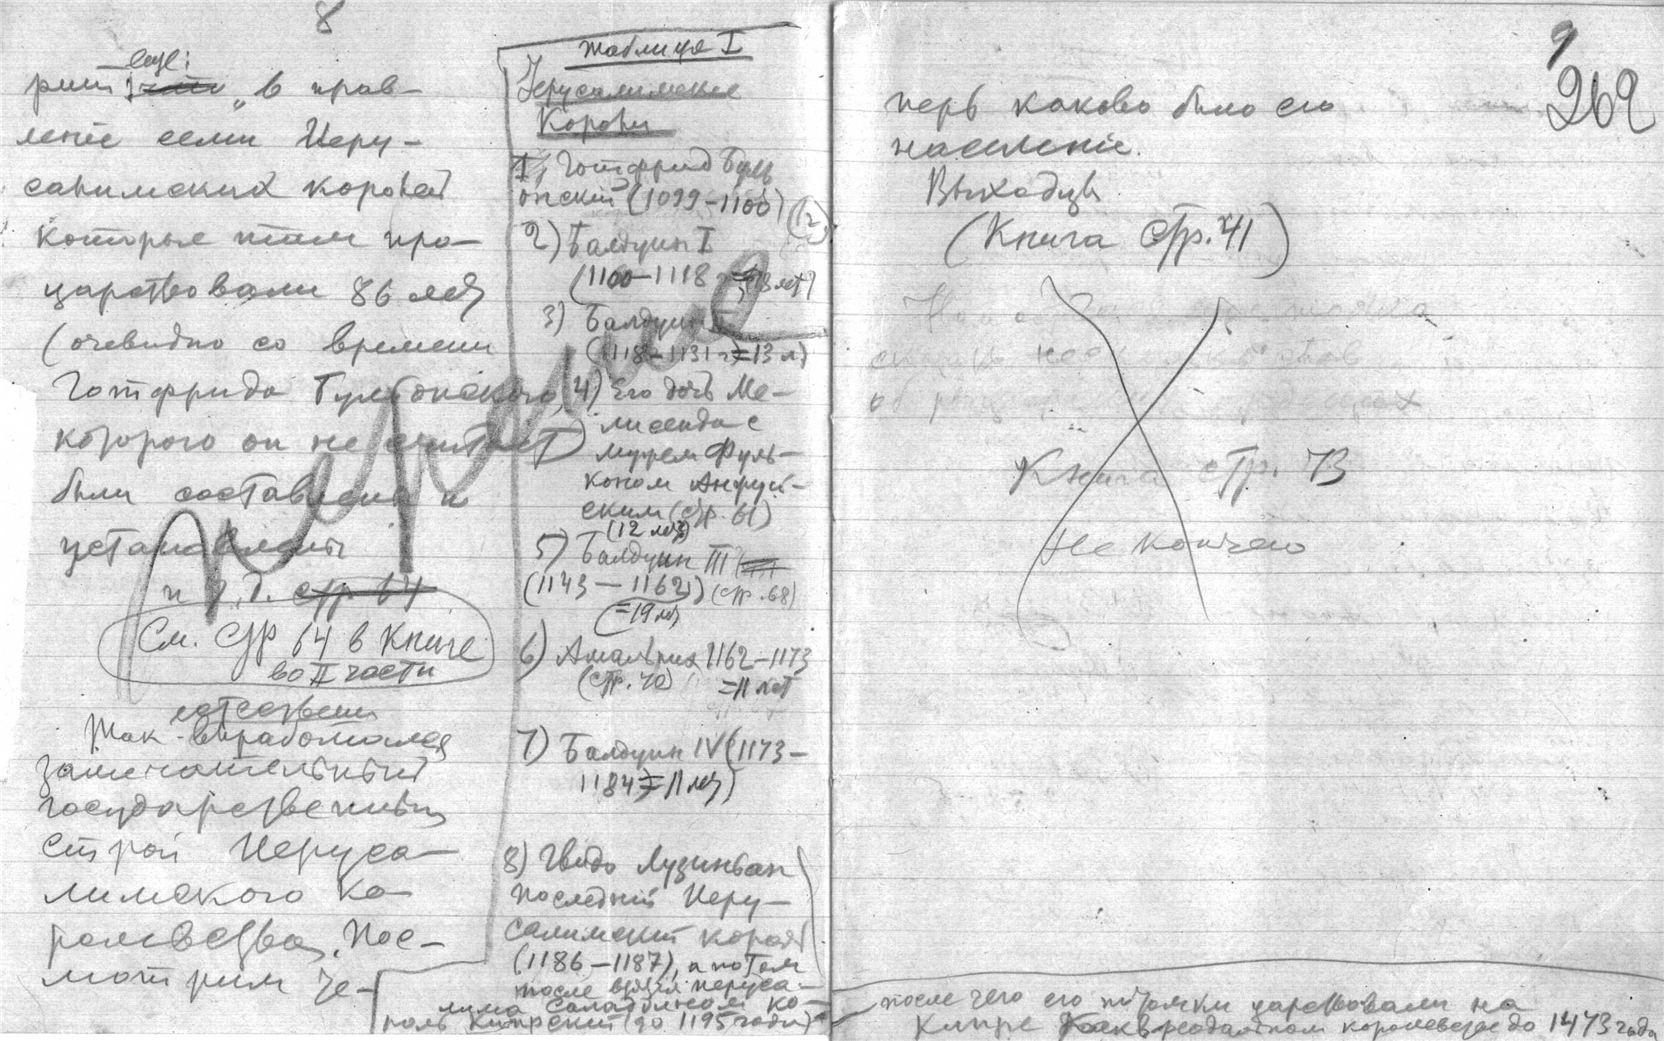 8
еще:
рит „в прав-
леніе семи Иеру-
салимских королей
которые там про-
царствовали 86 лет
(очевидно со времени
Готфрида Бульонского,
которого он не считает)
были составлены и
установлены
и т.д. стр 64
См. стр 64 в Книге
во II части
естественно
Так выработался
замечательный
государственный
строй Иеруса-
лимского ко-
ролевства. Пос-
мотрим те-
Таблица I
Иерусалимские
Короли
1) Готфрид Буль
онский (1099-1100)
2) Балдуин I
(1100-1118 г = 18 лет)
3) Балдуин II
(1118-1131 г = 13 л)
4) Его дочь Ме-
лисенда с
мужем Фуль-
коном Анжуй-
ским (стр. 61)
(12 лет)
5) Балдуин III
(1143 - 1162) (стр. 68)
(=19 лет)
6) Амальрих 1162-1173
(стр. 70) =11 лет
7) Балдуин IV (1173-
1184 = 11 лет)
8) Гвидо Лузиньян
последній Иеру-
салимский король
(1186-1187), а потом
после взятія Иеруса-
лима Саладином ко-
роль Кипрский (до 1195 года)
9
269
перь каково было его
населеніе.
Выходцы
(Книга стр. 41)
Книга стр. 73
Не кончено
после чего его потомки царствовали на
Кипре как в феодальном королевстве до 1473 года